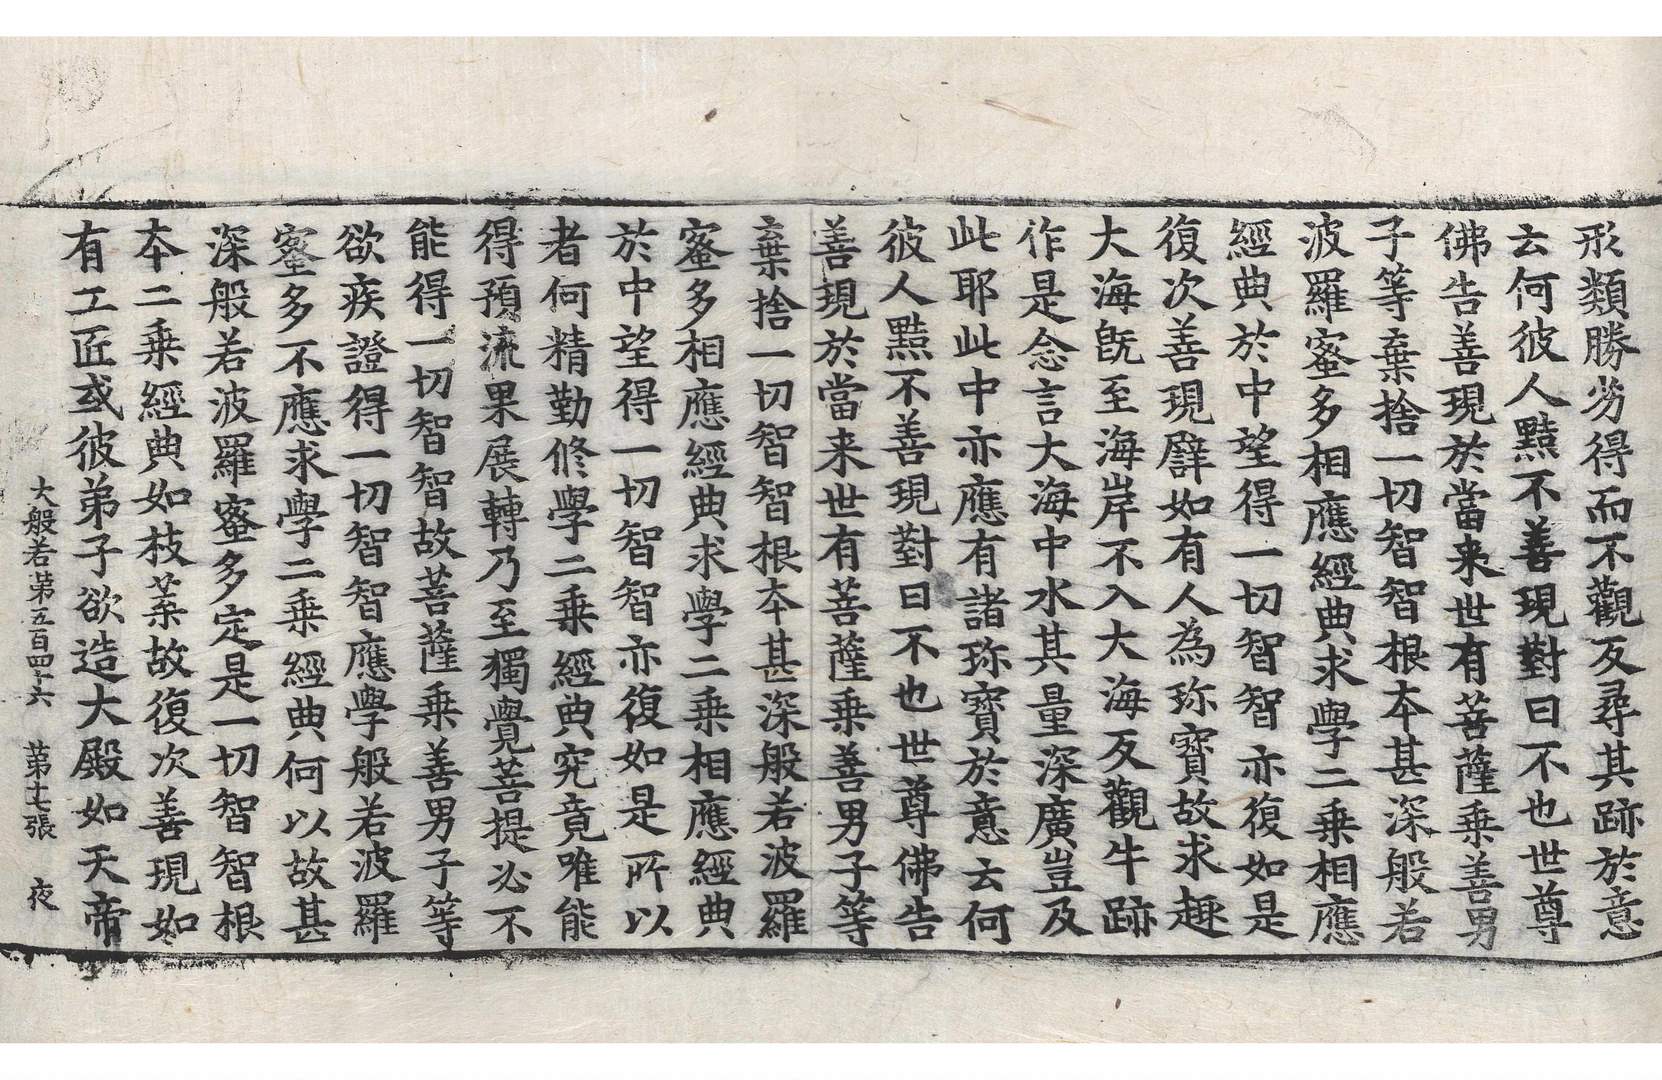 形類勝劣得而不觀反尋其跡於意
云何彼人黠不善現對曰不也世尊
佛告善現於當来世有菩薩乗善男
子等棄捨一切智智根本甚深般若
波羅蜜多相應經典求學二乗相應
經典於中望得一切智智亦復如是
復次善現譬如有人為珎寶故求趣
大海旣至海岸不入大海反觀牛跡
作是念言大海中水其量深廣豈及
此耶此中亦應有諸珎寶於意云何
彼人黠不善現對曰不也世尊佛告
善現於當来世有菩薩乗善男子等
棄捨一切智智根本甚深般若波羅
蜜多相應經典求學二乗相應經典
於中望得一切智智亦復如是所以
者何精勤修學二乗經典究竟唯能
得預流果展轉乃至獨覺菩提必不
能得一切智智故菩薩乗善男子等
欲疾證得一切智智應學般若波羅
蜜多不應求學二乗經典何以故甚
深般若波羅蜜多定是一切智智根
本二乗經典如枝葉故復次善現如
有工匠或彼弟子欲造大殿如天帝
大般若第五百四十六 第十七張 夜